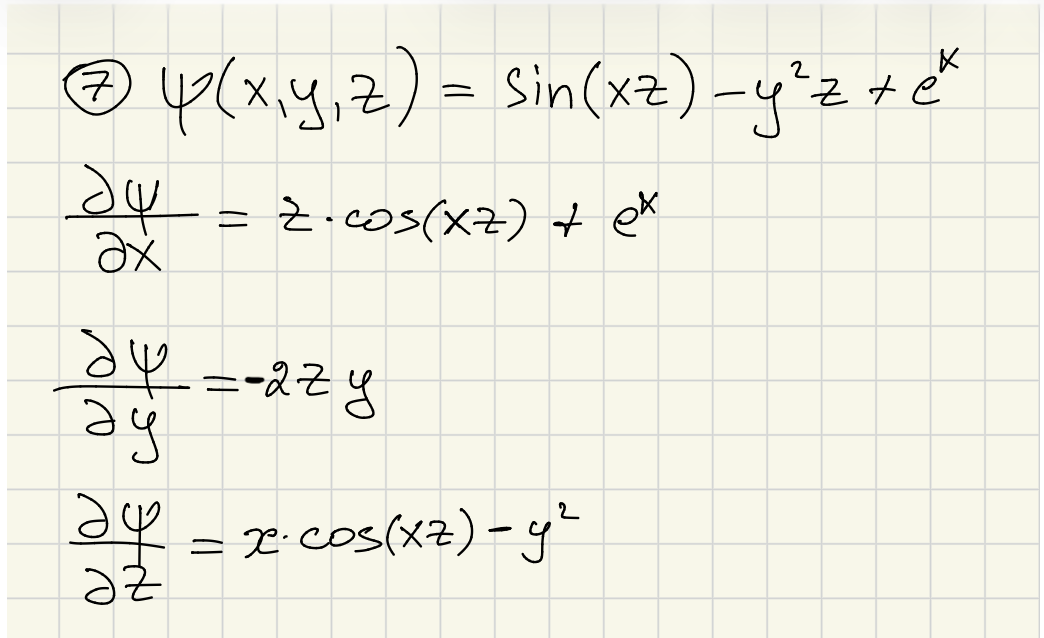 ⑦ ψ(x,y,z) = sin(xz) - y²z + eˣ
∂ψ/∂x = z·cos(xz) + eˣ
∂ψ/∂y = -2zy
∂ψ/∂z = x·cos(xz) - y²